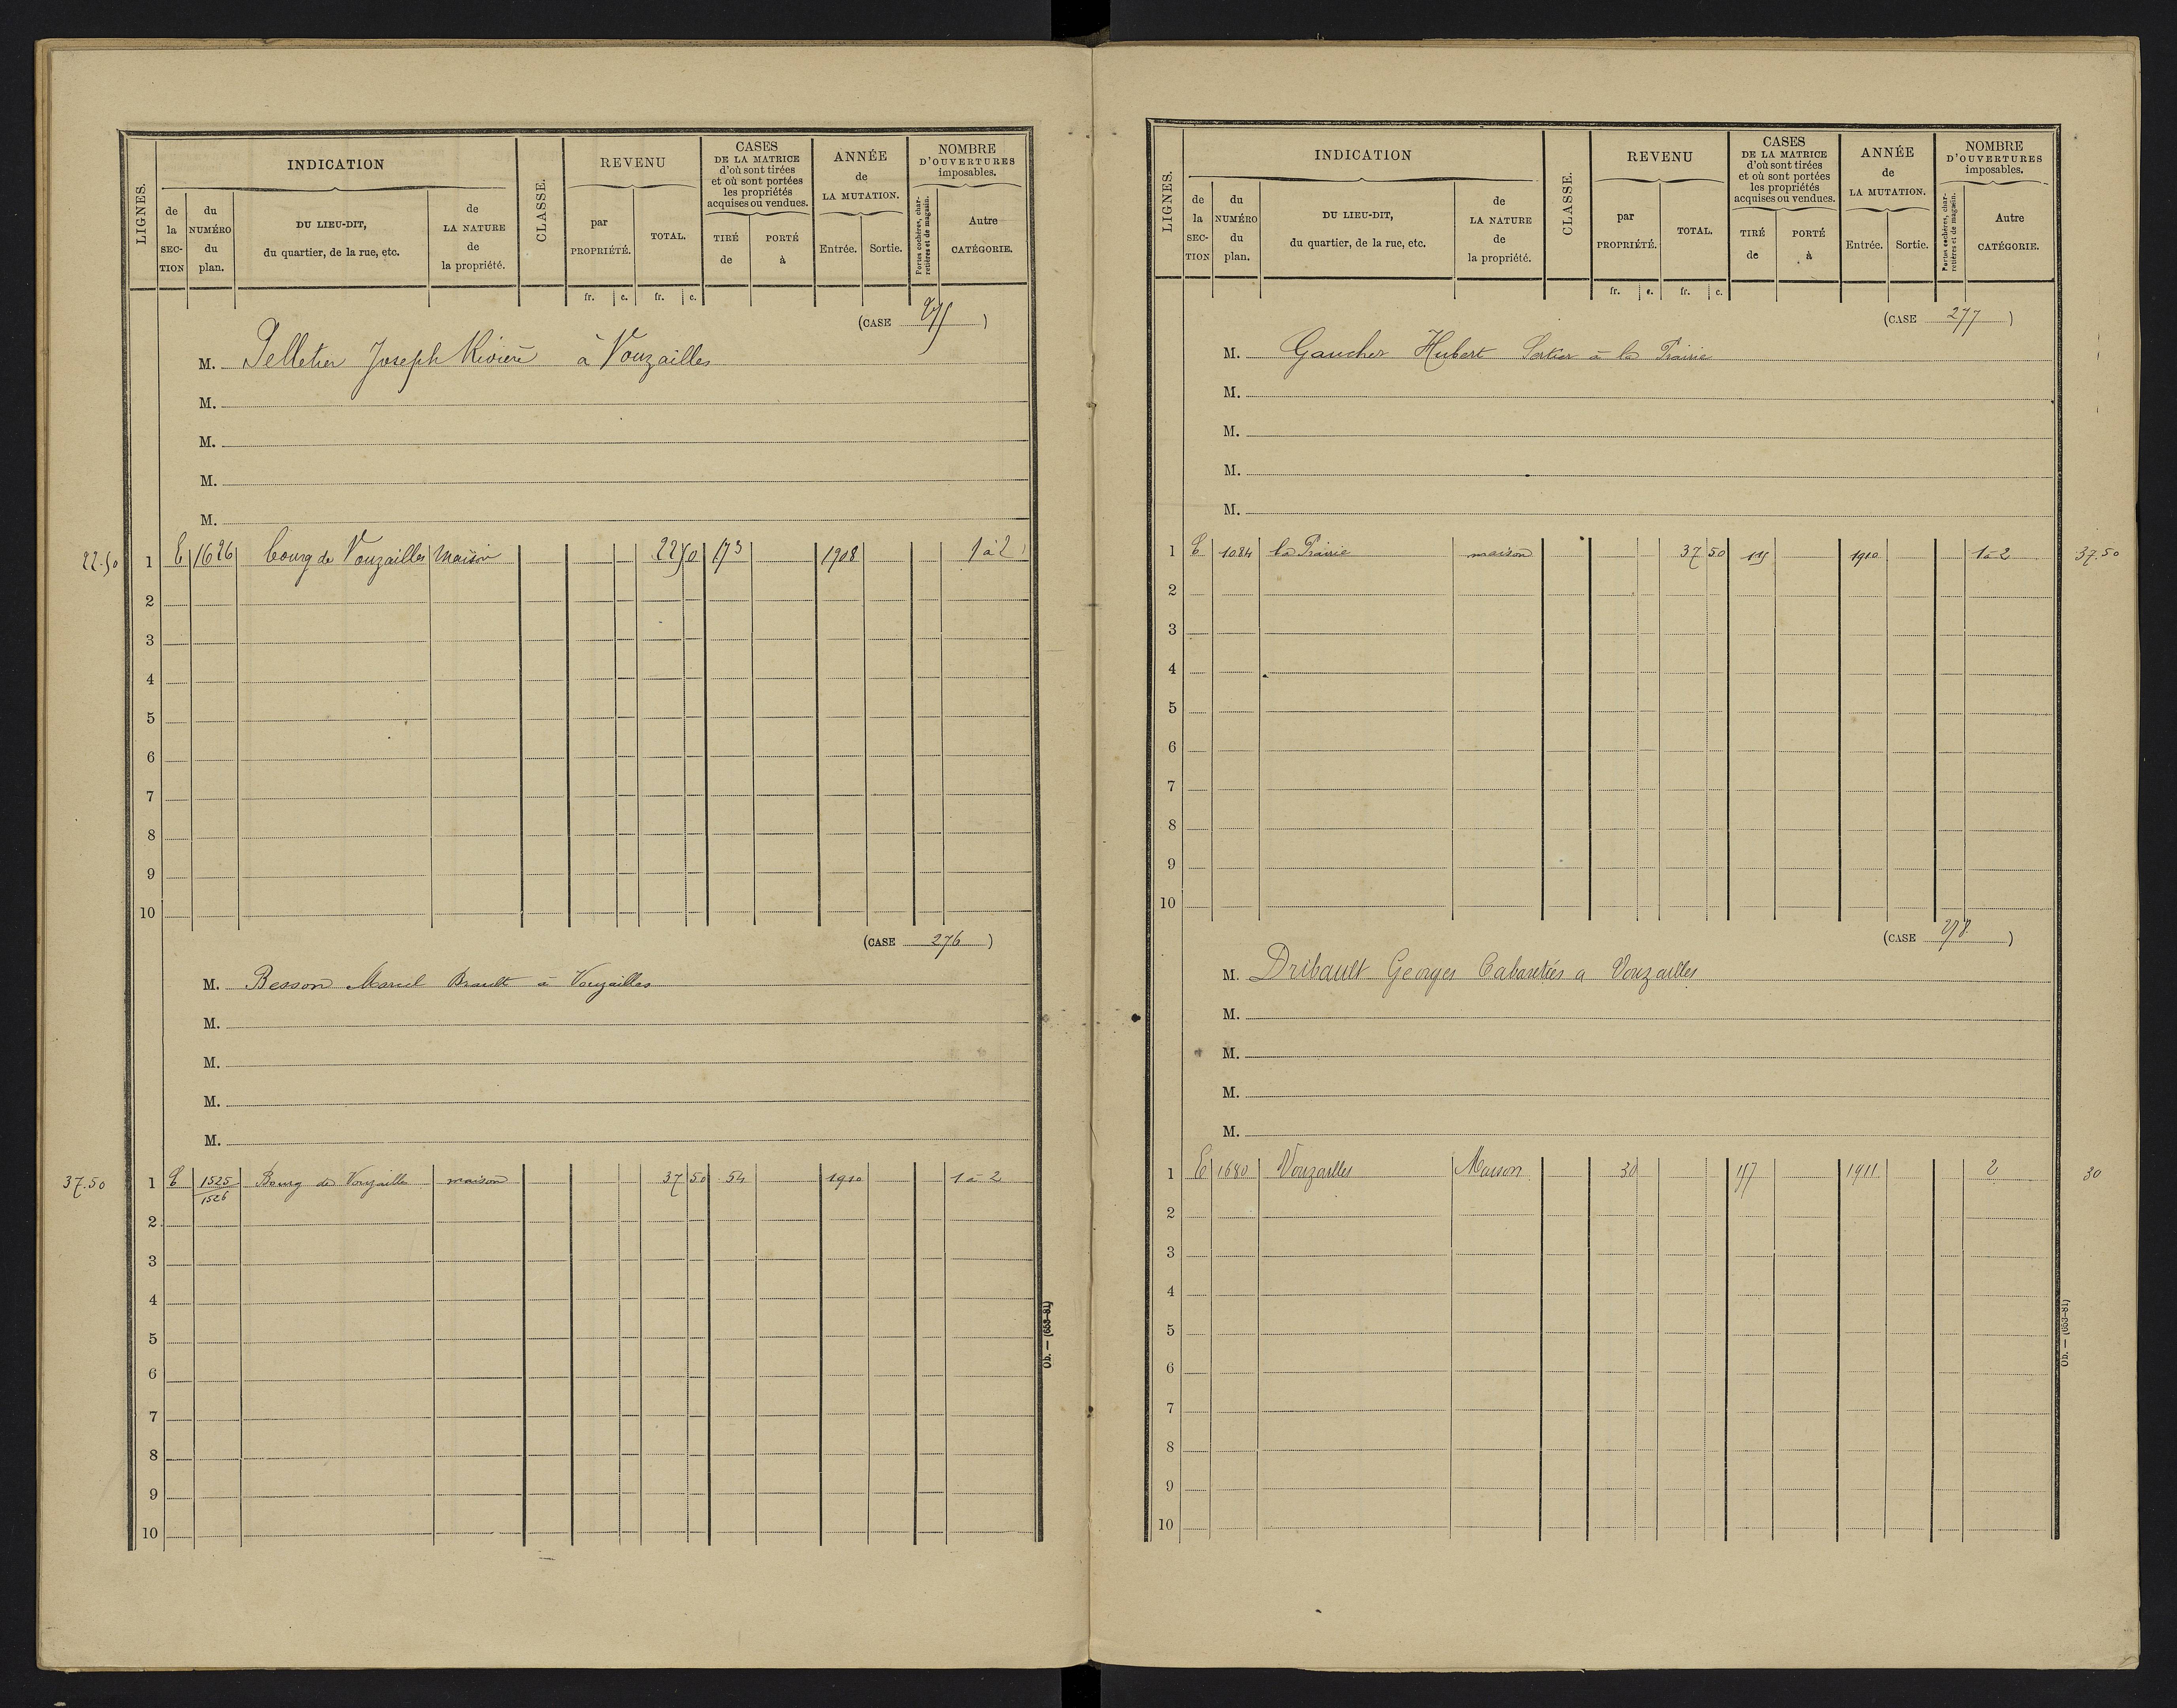 LIGNES.
INDICATION
de la SECTION
du NUMÉRO du plan.
DU LIEU-DIT,
du quartier, de la rue, etc.
de LA NATURE de la propriété.
CLASSE.
REVENU
par PROPRIÉTÉ.
TOTAL.
CASES DE LA MATRICE d'où sont tirées et où sont portées les propriétés acquises ou vendues.
TIRÉ de
PORTÉ à
ANNÉE de LA MUTATION.
Entrée.
Sortie.
NOMBRE D'OUVERTURES imposables.
Portes cochères, charretières et de magasin.
Autre CATÉGORIE.
fr. c. fr. c.
(CASE 275)
M. Pelletier Joseph Rivière à Vouzailles
M.
M.
M.
M.
22.50 1 E 1626 bourg de Vouzailles Maison 22 50 173 1908 1 à 2
2
3
4
5
6
7
8
9
10
(CASE 276)
M. Besson Marcel Brault à Vouzailles
M.
M.
M.
M.
37.50 1 E 1525 Bourg de Vouzailles maison 37 50 54 1910 1 à 2
1526
2
3
4
5
6
7
8
9
10
Ob. — (653-81)
LIGNES.
INDICATION
de la SECTION
du NUMÉRO du plan.
DU LIEU-DIT,
du quartier, de la rue, etc.
de LA NATURE de la propriété.
CLASSE.
REVENU
par PROPRIÉTÉ.
TOTAL.
CASES DE LA MATRICE d'où sont tirées et où sont portées les propriétés acquises ou vendues.
TIRÉ de
PORTÉ à
ANNÉE de LA MUTATION.
Entrée.
Sortie.
NOMBRE D'OUVERTURES imposables.
Portes cochères, charretières et de magasin.
Autre CATÉGORIE.
fr. c. fr. c.
(CASE 277)
M. Gaucher Hubert à la Prairie
M.
M.
M.
M.
1 E 1084 la Prairie maison 37 50 1910 1 à 2 37.50
2
3
4
5
6
7
8
9
10
(CASE 278)
M. Dribault Georges Cabaretier a Vouzailles
M.
M.
M.
M.
1 E 1680 Vouzailles Maison 30 1911 2 30
2
3
4
5
6
7
8
9
10
Ob. — (653-81)